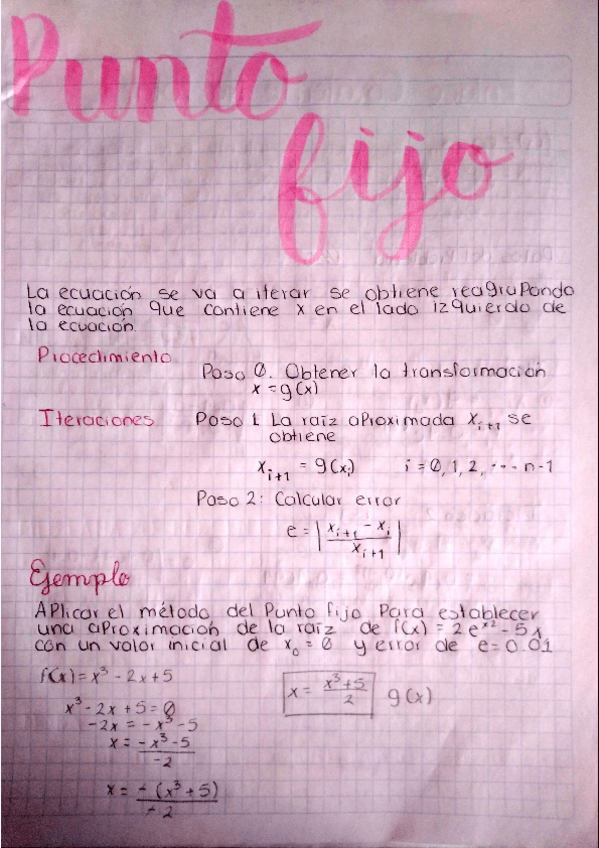 Punto
fijo
La ecuación se va a iterar se obtiene reagrupando
la ecuación que contiene x en el lado izquierdo de
la ecuación
Procedimiento
Paso 0. Obtener la transformación
x = g(x)
Iteraciones
Paso 1. La raíz aproximada Xᵢ₊₁ se
obtiene
Xᵢ₊₁ = g(xᵢ) i = 0, 1, 2, ... n-1
Paso 2: Calcular error
e = | (xᵢ₊₁ - xᵢ) / xᵢ₊₁ |
Ejemplo
Aplicar el método del Punto fijo para establecer
una aproximación de la raíz de f(x) = 2e^x² - 5x
con un valor inicial de x₀ = 0 y error de e = 0.01
f(x) = x³ - 2x + 5
x³ - 2x + 5 = 0
-2x = -x³ - 5
x = (-x³ - 5) / -2
x = -(x³ + 5) / -2
x = (x³ + 5) / 2 g(x)